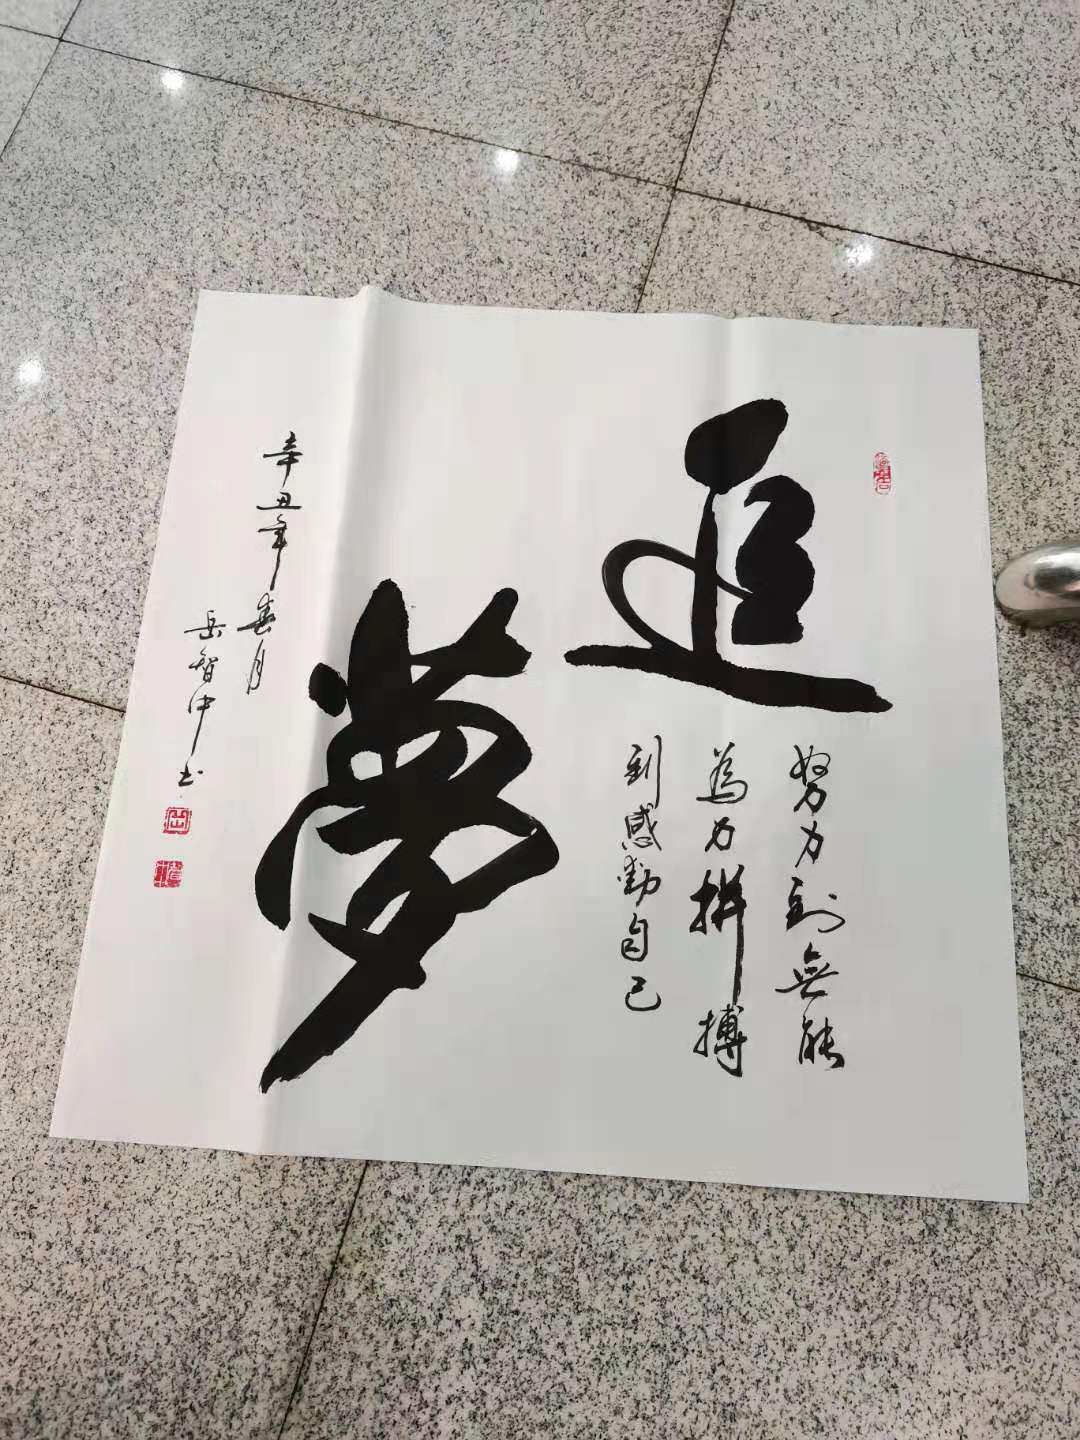 追夢
努力到無能
為力拼搏
到感動自己
辛丑年春月
岳智中书